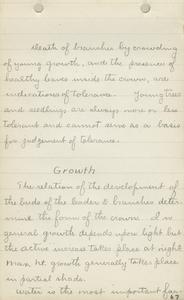 death of branches by crowding
of young growth, and the presence of
healthy leaves inside the crown, are
indications of tolerance. Young trees
and seedlings are always more or less
tolerant and cannot serve as a basis
for judgement of tolerance.
Growth
The relation of the development of
the buds of the leader & branches deter-
mine the form of the crown. In
general growth depends upon light but
the active increase takes place at night
growth generally takes place
in partial shade.
Water is the most important fac-
167